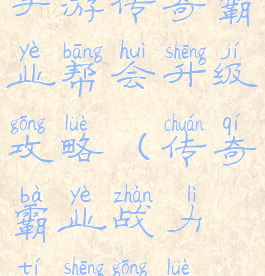 手游传奇霸
yè bāng huì shēng jí
业帮会升级
gōng lüè chuán qí
攻略（传奇
bà yè zhàn lì
霸业战力
tí shēng gōng lüè